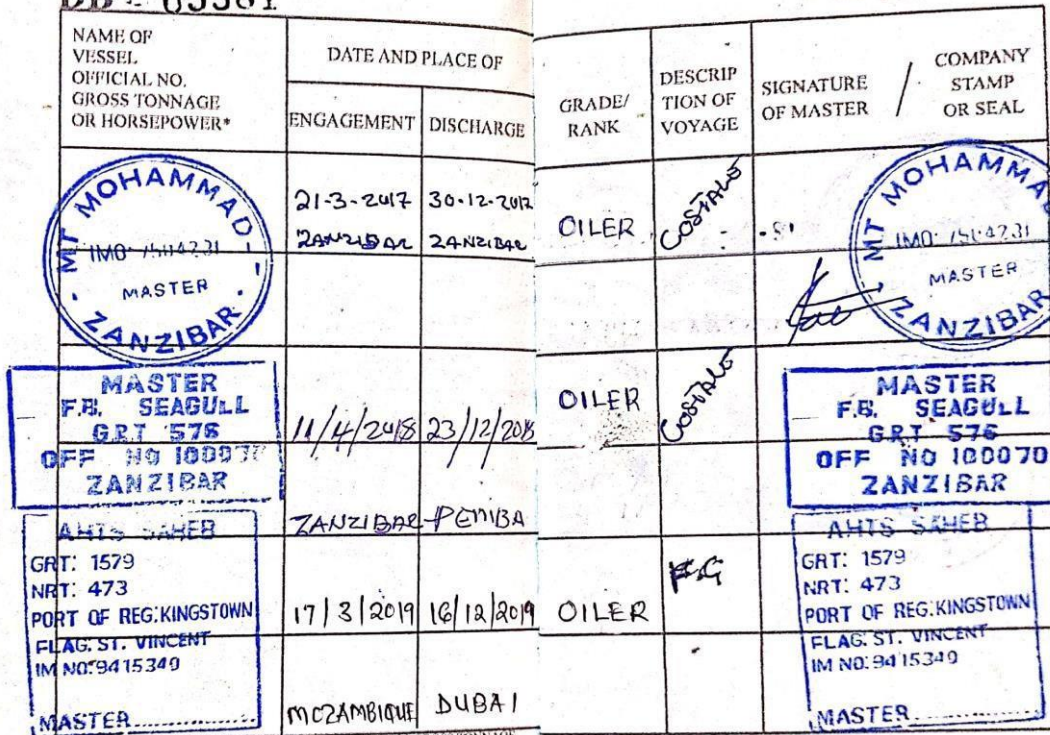 NAME OF
VESSEL
OFFICIAL NO.
GROSS TONNAGE
OR HORSEPOWER*
DATE AND PLACE OF
ENGAGEMENT DISCHARGE
GRADE/
RANK
DESCRIP
TION OF
VOYAGE
SIGNATURE
OF MASTER
/
COMPANY
STAMP
OR SEAL
MT MOHAMMAD-1
MASTER
ZANZIBAR
21-3-2017 30-12-2017
ZANZIBAR ZANZIBAR
OILER
COSTALS
MT MOHAMMA
MASTER
ZANZIBAR
MASTER
F.B. SEAGULL
GRT 576
OFF NO 100070
ZANZIBAR
11/4/2018 23/12/2018
ZANZIBAR-PEMBA
OILER
COSTALS
MASTER
F.B. SEAGULL
GRT 576
OFF NO 100070
ZANZIBAR
AHTS SAHEB
GRT: 1579
NRT: 473
PORT OF REG:KINGSTOWN
FLAG: ST. VINCENT
IM NO:9415349
MASTER
17/3/2019 16/12/2019
MOZAMBIQUE DUBAI
OILER
F.G
AHTS SAHEB
GRT: 1579
NRT: 473
PORT OF REG:KINGSTOWN
FLAG: ST. VINCENT
IM NO:9415349
MASTER